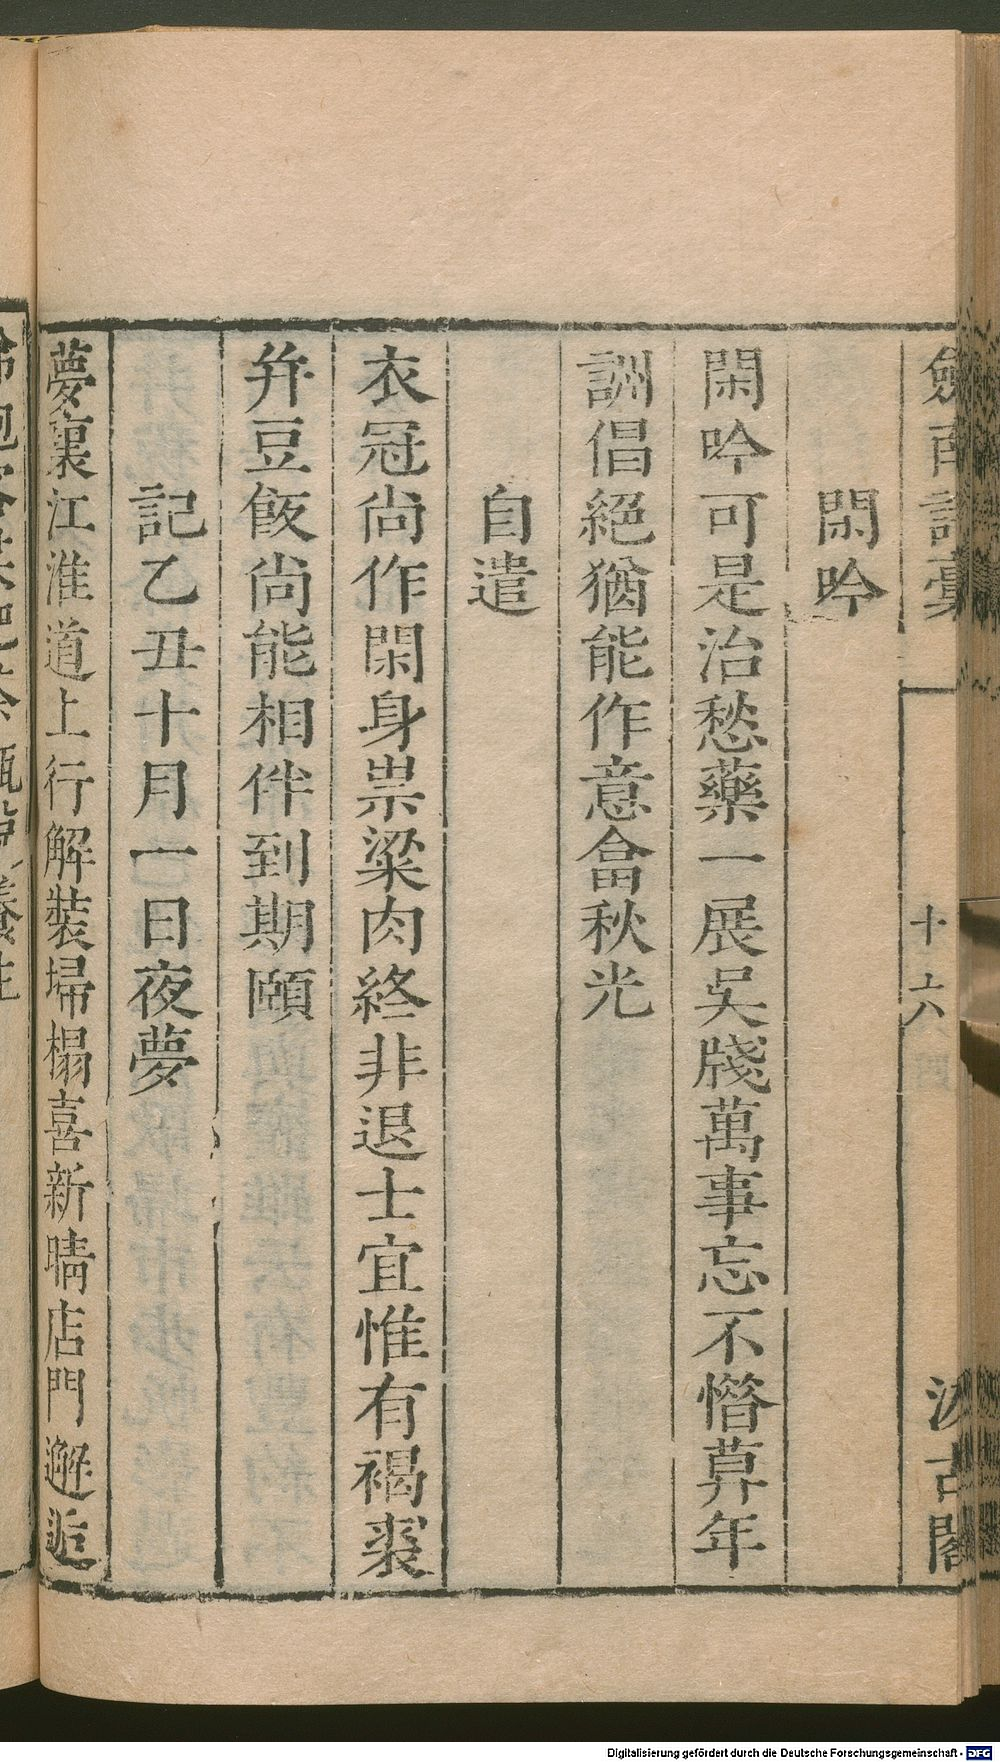 劍南詩稾 十六 汲古閣
閑吟
閑吟可是治愁藥一展吳牋萬事忘不憯莫年
詶倡絕猶能作意畣秋光
自遣
衣冠尚作閑身祟粱肉終非退士宜惟有褐裘
并豆飯尚能相伴到期頤
記乙丑十月一日夜夢
夢裏江淮道上行解裝埽榻喜新晴店門邂逅
Digitalisierung gefördert durch die Deutsche Forschungsgemeinschaft - DFG